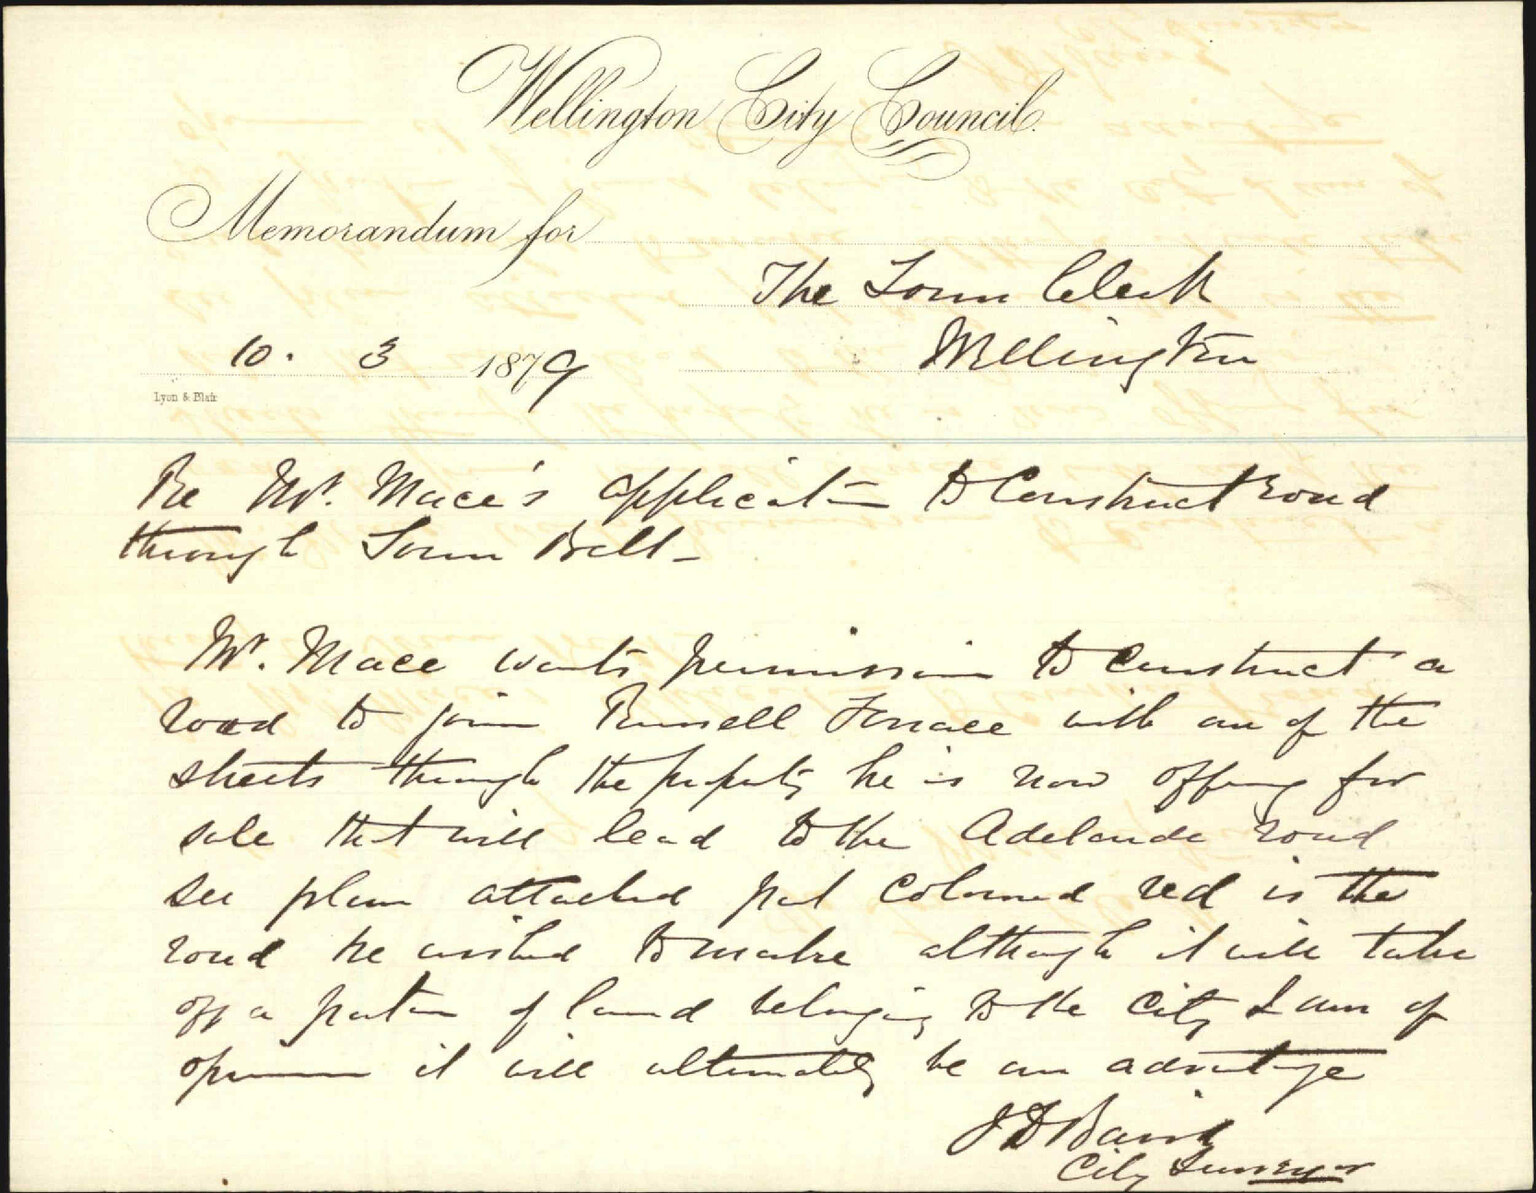 Wellington City Council.
Memorandum for
The Town Clerk
Wellington
10. 3 1879
Lyon & Blair
Re Mr. Mace's application to Construct road
through Town Belt -
Mr. Mace wants permission to construct a
road to join Russell Terrace with one of the
streets through the property he is now offering for
sale that will lead to the Adelaide road
see plan attached part coloured red is the
road he wished to make although it will take
off a portion of land belonging to the City I am of
opinion it will ultimately be an advantage
J D Baird
City Surveyor